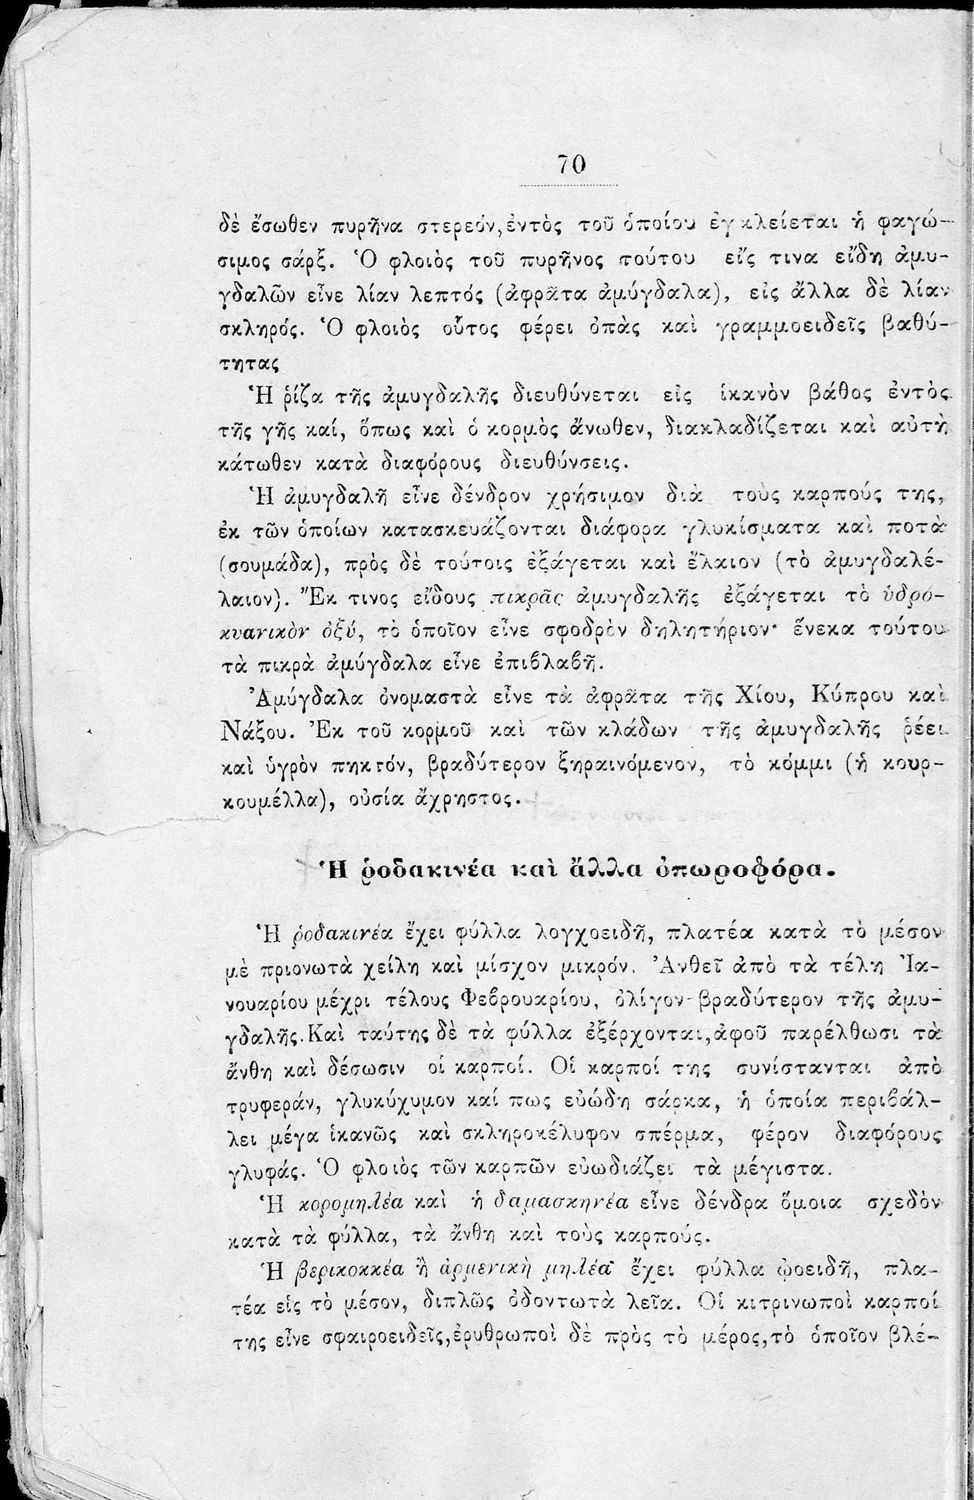 70
δὲ ἔσωθεν πυρῆνα στερεόν, ἐντὸς τοῦ ὁποίου ἐγκλείεται ἡ φαγώ-
σιμος σάρξ. Ὁ φλοιὸς τοῦ πυρῆνος τούτου εἴς τινα εἴδη ἀμυ-
γδαλῶν εἶνε λίαν λεπτός (ἀφρᾶτα ἀμύγδαλα), εἰς ἄλλα δὲ λίαν
σκληρός. Ὁ φλοιὸς οὗτος φέρει ὀπὰς καὶ γραμμοειδεῖς βαθύ-
τητας
Ἡ ῥίζα τῆς ἀμυγδαλῆς διευθύνεται εἰς ἱκανὸν βάθος ἐντὸς
τῆς γῆς καί, ὅπως καὶ ὁ κορμὸς ἄνωθεν, διακλαδίζεται καὶ αὐτὴ
κάτωθεν κατὰ διαφόρους διευθύνσεις.
Ἡ ἀμυγδαλῆ εἶνε δένδρον χρήσιμον διὰ τοὺς καρπούς της,
ἐκ τῶν ὁποίων κατασκευάζονται διάφορα γλυκίσματα καὶ ποτὰ
(σουμάδα), πρὸς δὲ τούτοις ἐξάγεται καὶ ἔλαιον (τὸ ἀμυγδαλέ-
λαιον). Ἔκ τινος εἴδους πικρᾶς ἀμυγδαλῆς ἐξάγεται τὸ ὑδρο-
κυανικὸν ὀξύ, τὸ ὁποῖον εἶνε σφοδρὸν δηλητήριον· ἕνεκα τούτου
τὰ πικρὰ ἀμύγδαλα εἶνε ἐπιβλαβῆ.
Ἀμύγδαλα ὀνομαστὰ εἶνε τὰ ἀφρᾶτα τῆς Χίου, Κύπρου καὶ
Νάξου. Ἐκ τοῦ κορμοῦ καὶ τῶν κλάδων τῆς ἀμυγδαλῆς ῥέει
καὶ ὑγρὸν πηκτόν, βραδύτερον ξηραινόμενον, τὸ κόμμι (ἡ κουρ-
κουμέλλα), οὐσία ἄχρηστος.
Ἡ ῥοδακινέα καὶ ἄλλα ὀπωροφόρα.
Ἡ ῥοδακινέα ἔχει φύλλα λογχοειδῆ, πλατέα κατὰ τὸ μέσον
μὲ πριονωτὰ χείλη καὶ μίσχον μικρόν. Ἀνθεῖ ἀπὸ τὰ τέλη Ἰα-
νουαρίου μέχρι τέλους Φεβρουαρίου, ὀλίγον βραδύτερον τῆς ἀμυ-
γδαλῆς. Καὶ ταύτης δὲ τὰ φύλλα ἐξέρχονται, ἀφοῦ παρέλθωσι τὰ
ἄνθη καὶ δέσωσιν οἱ καρποί. Οἱ καρποί της συνίστανται ἀπὸ
τρυφεράν, γλυκύχυμον καί πως εὐώδη σάρκα, ἡ ὁποία περιβάλ-
λει μέγα ἱκανῶς καὶ σκληροκέλυφον σπέρμα, φέρον διαφόρους
γλυφάς. Ὁ φλοιὸς τῶν καρπῶν εὐωδιάζει τὰ μέγιστα.
Ἡ κορομηλέα καὶ ἡ δαμασκηνέα εἶνε δένδρα ὅμοια σχεδὸν
κατὰ τὰ φύλλα, τὰ ἄνθη καὶ τοὺς καρπούς.
Ἡ βερικοκκέα ἢ ἀρμενικὴ μηλέα ἔχει φύλλα ᾠοειδῆ, πλα-
τέα εἰς τὸ μέσον, διπλῶς ὀδοντωτὰ λεῖα. Οἱ κιτρινωποὶ καρποί
της εἶνε σφαιροειδεῖς, ἐρυθρωποὶ δὲ πρὸς τὸ μέρος, τὸ ὁποῖον βλέ-